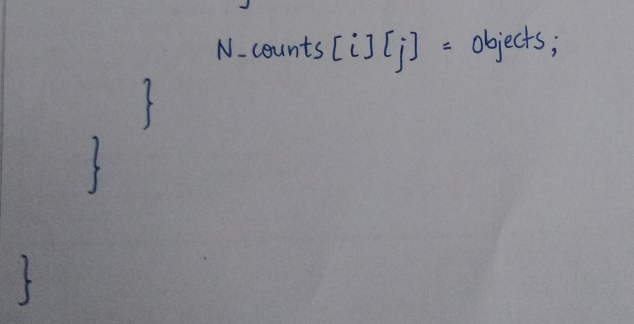 N_counts[i][j] = objects;
}
}
}